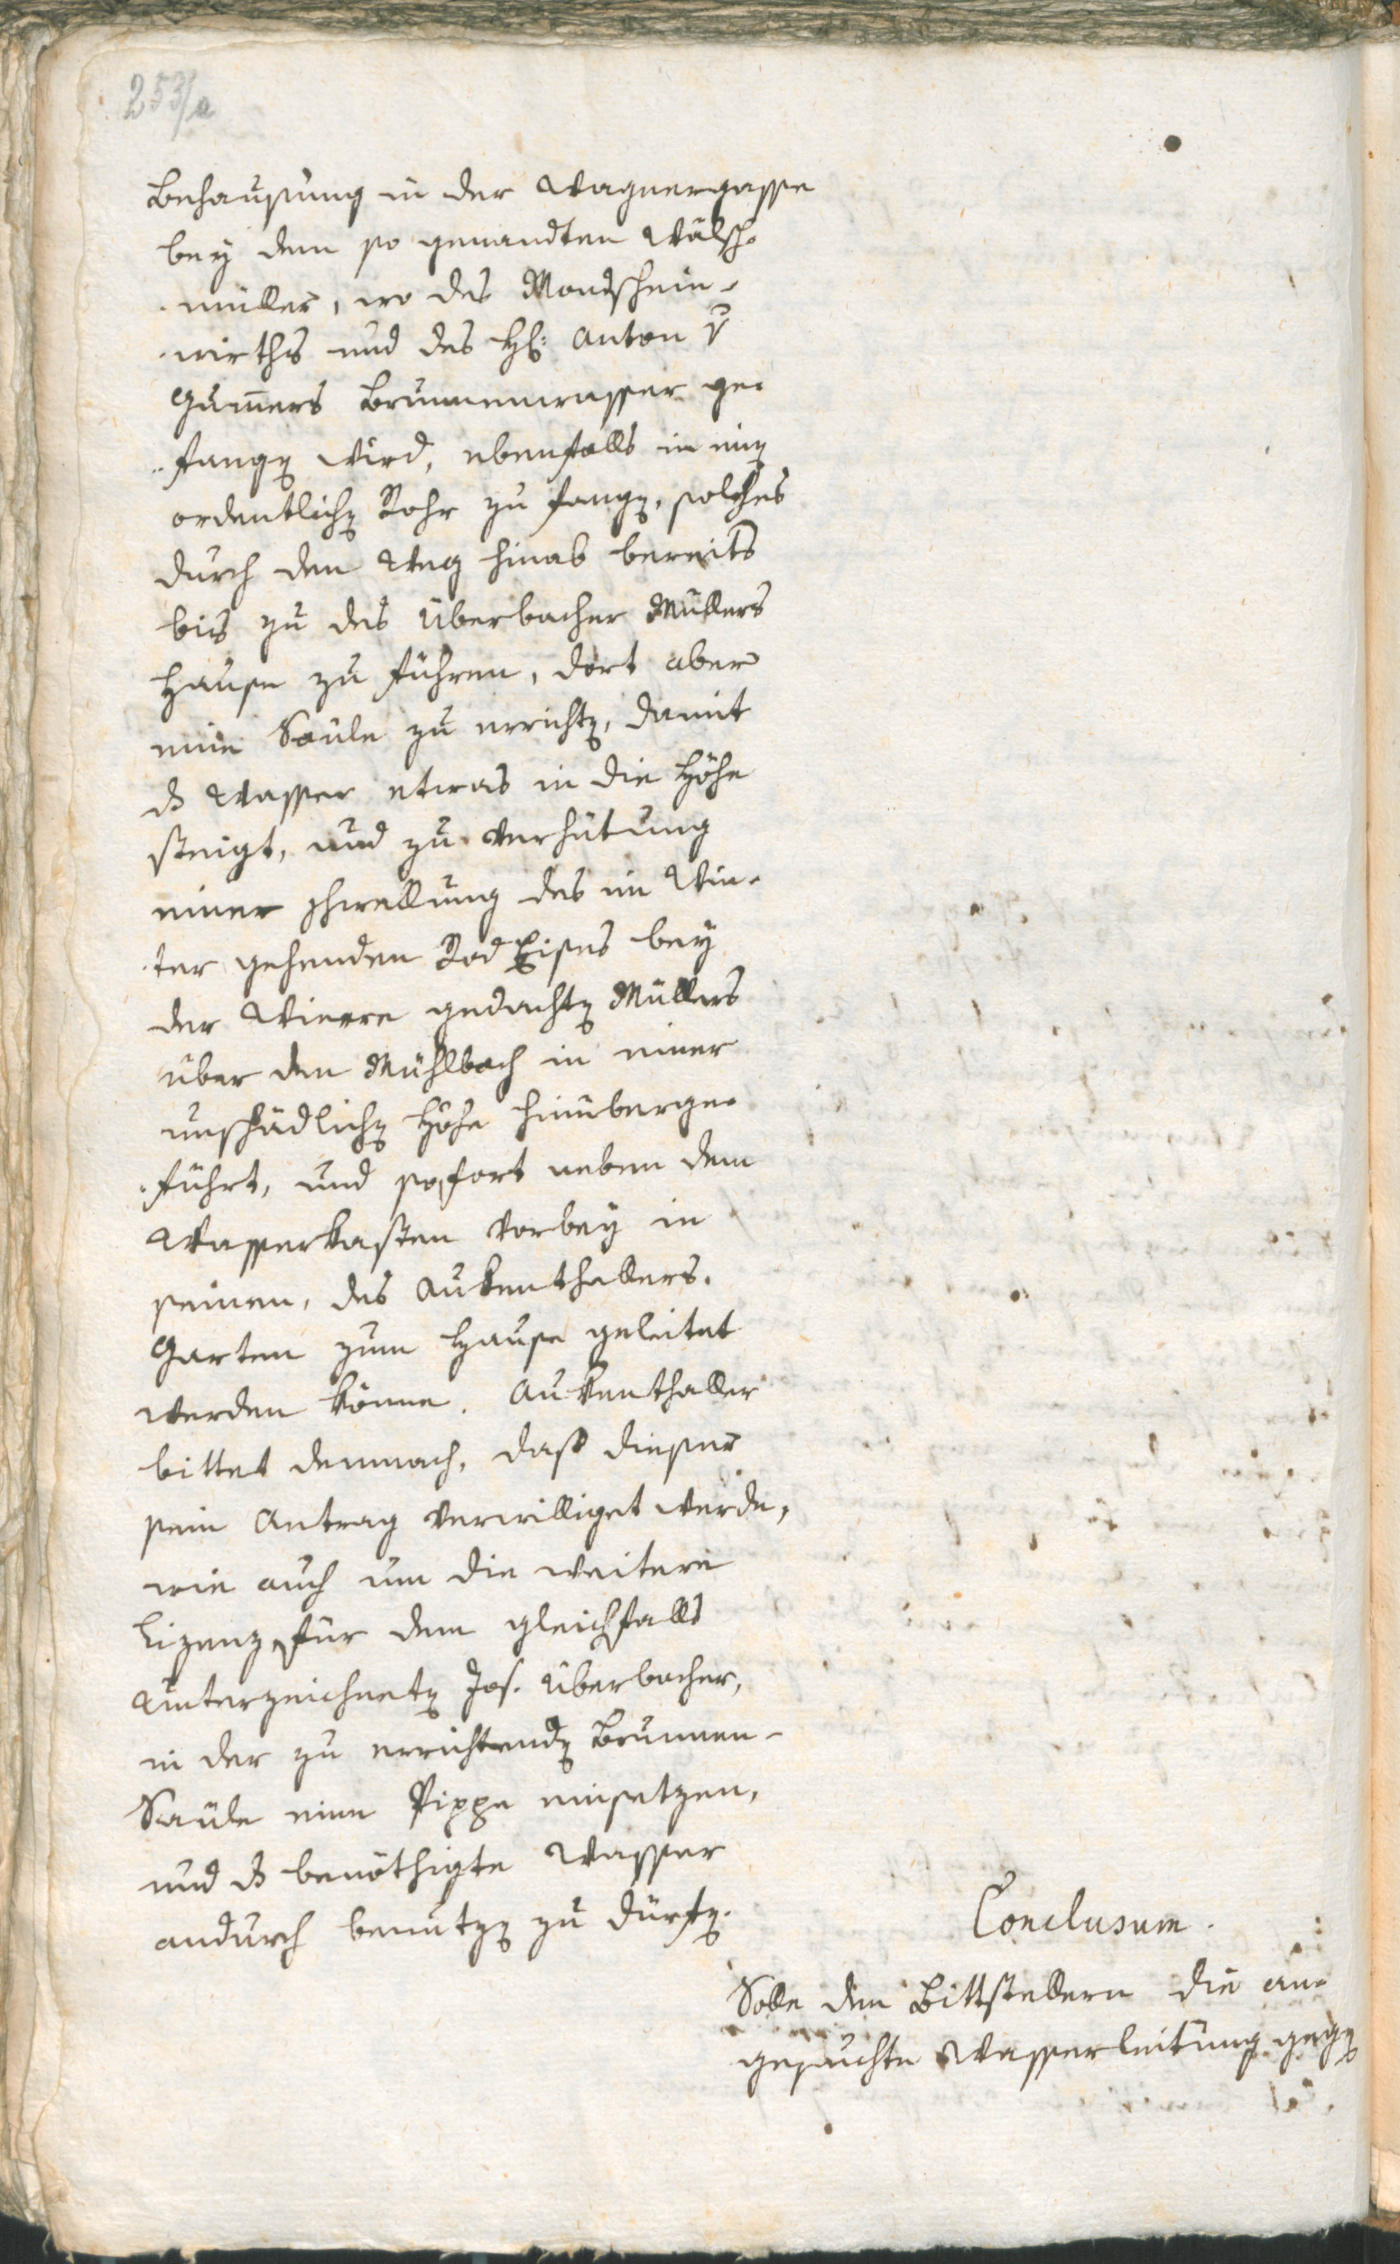 253/a
Behausung in der Wagnergasse
bey dem so genandten Wälsch-
müller, wo des Mondschein-
wirths und des H: Anton v
Gumers Brunnenwasser ge-
fangen wird, ebenfalls in ein
ordentlichen Rohr zu fangen, solches
durch den Weg hinab bereits
bis zu des Überbacher Müllers
Hause zu führen, dort aber
eine Säule zu errichten, damit
ds Wasser etwas in die Höhe
steigt, und zu Verhütung
einer schwellung des im Win-
ter gehenden Bod Eises bey
der Wiere gedachten Müllers
über den Mühlbach in einer
unschädlichen Höhe hinüberge-
führt, und sofort neben dem
Wasserkasten vorbey in
seinen, des Aukenthallers.
Garten zum Hause geleitet
werden könne. Aukenthaller
bittet demnach, daß dieser
sein Antrag verwilliget werde,
wie auch um die weitere
Lizenz, für dem gleichfalls
Unterzeichneten Jos. Überbacher,
in der zu errichtenden Brunnen-
Säule eine Pippe einsetzen,
und ds benöthigte Wasser
andurch benutzen zu dürfen.
Conclusum.
Solle den Bittstellern die an-
gesuchte Wasserleitung gegen